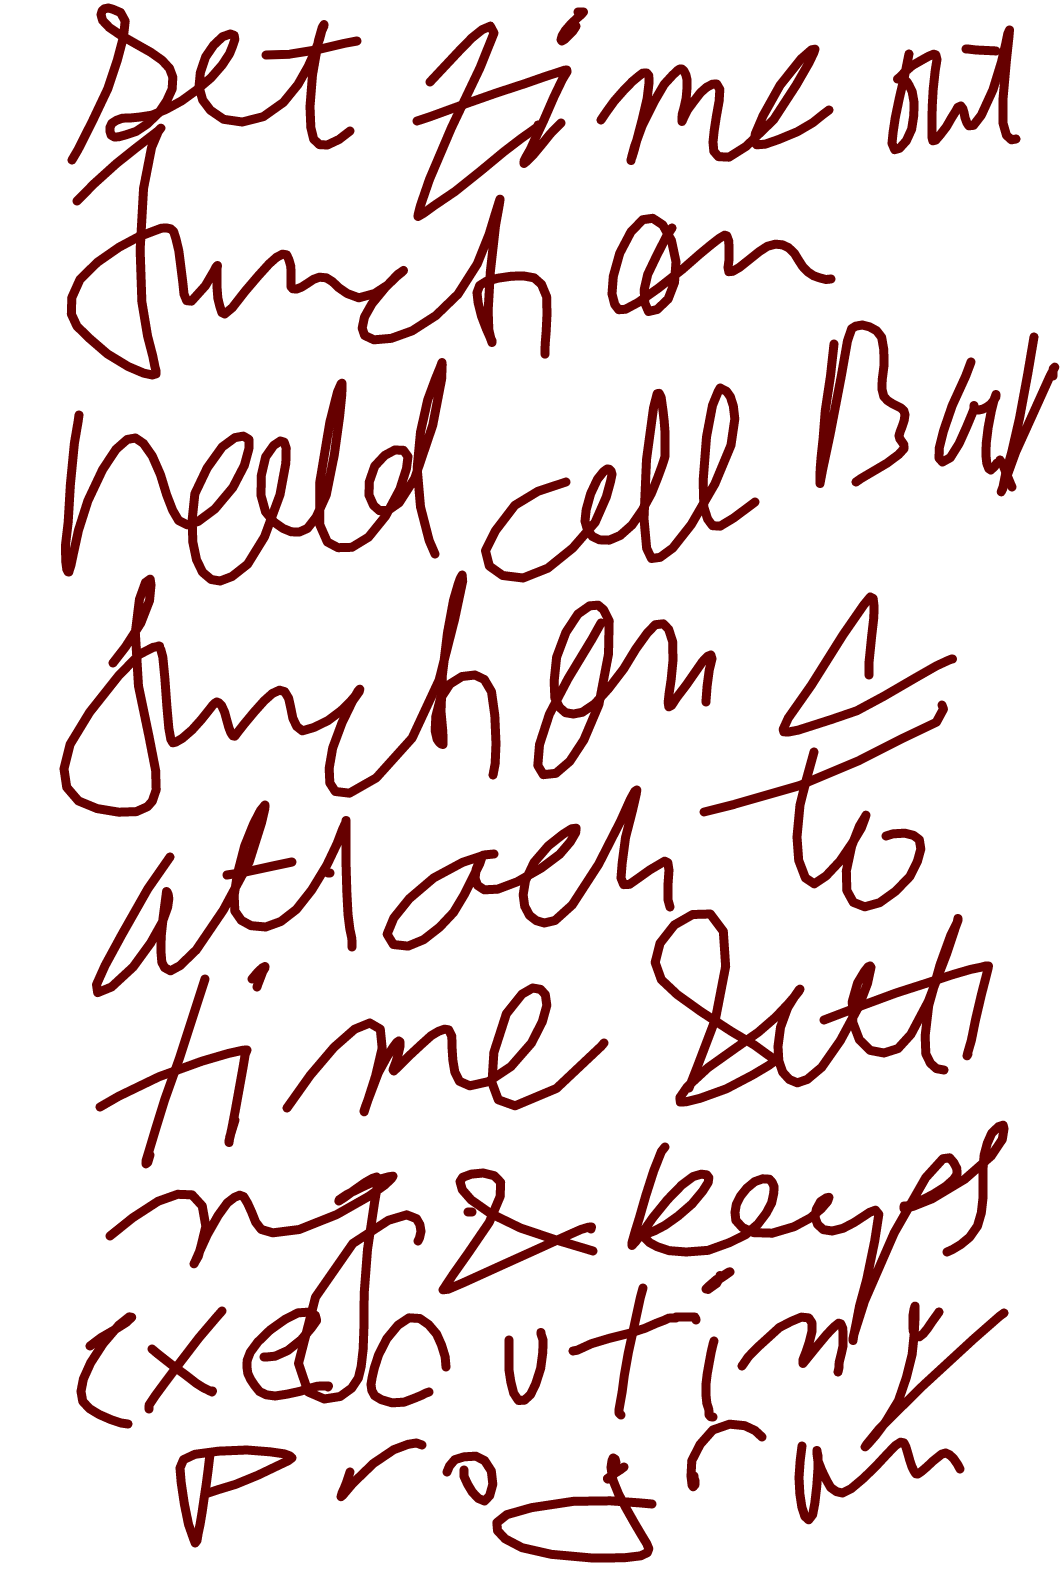 Set time out
function
need call Back
function &
attach to
time setti
ng & keeps
executing
program